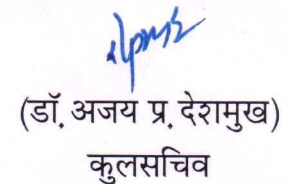 (डॉ. अजय प्र. देशमुख)
कुलसचिव